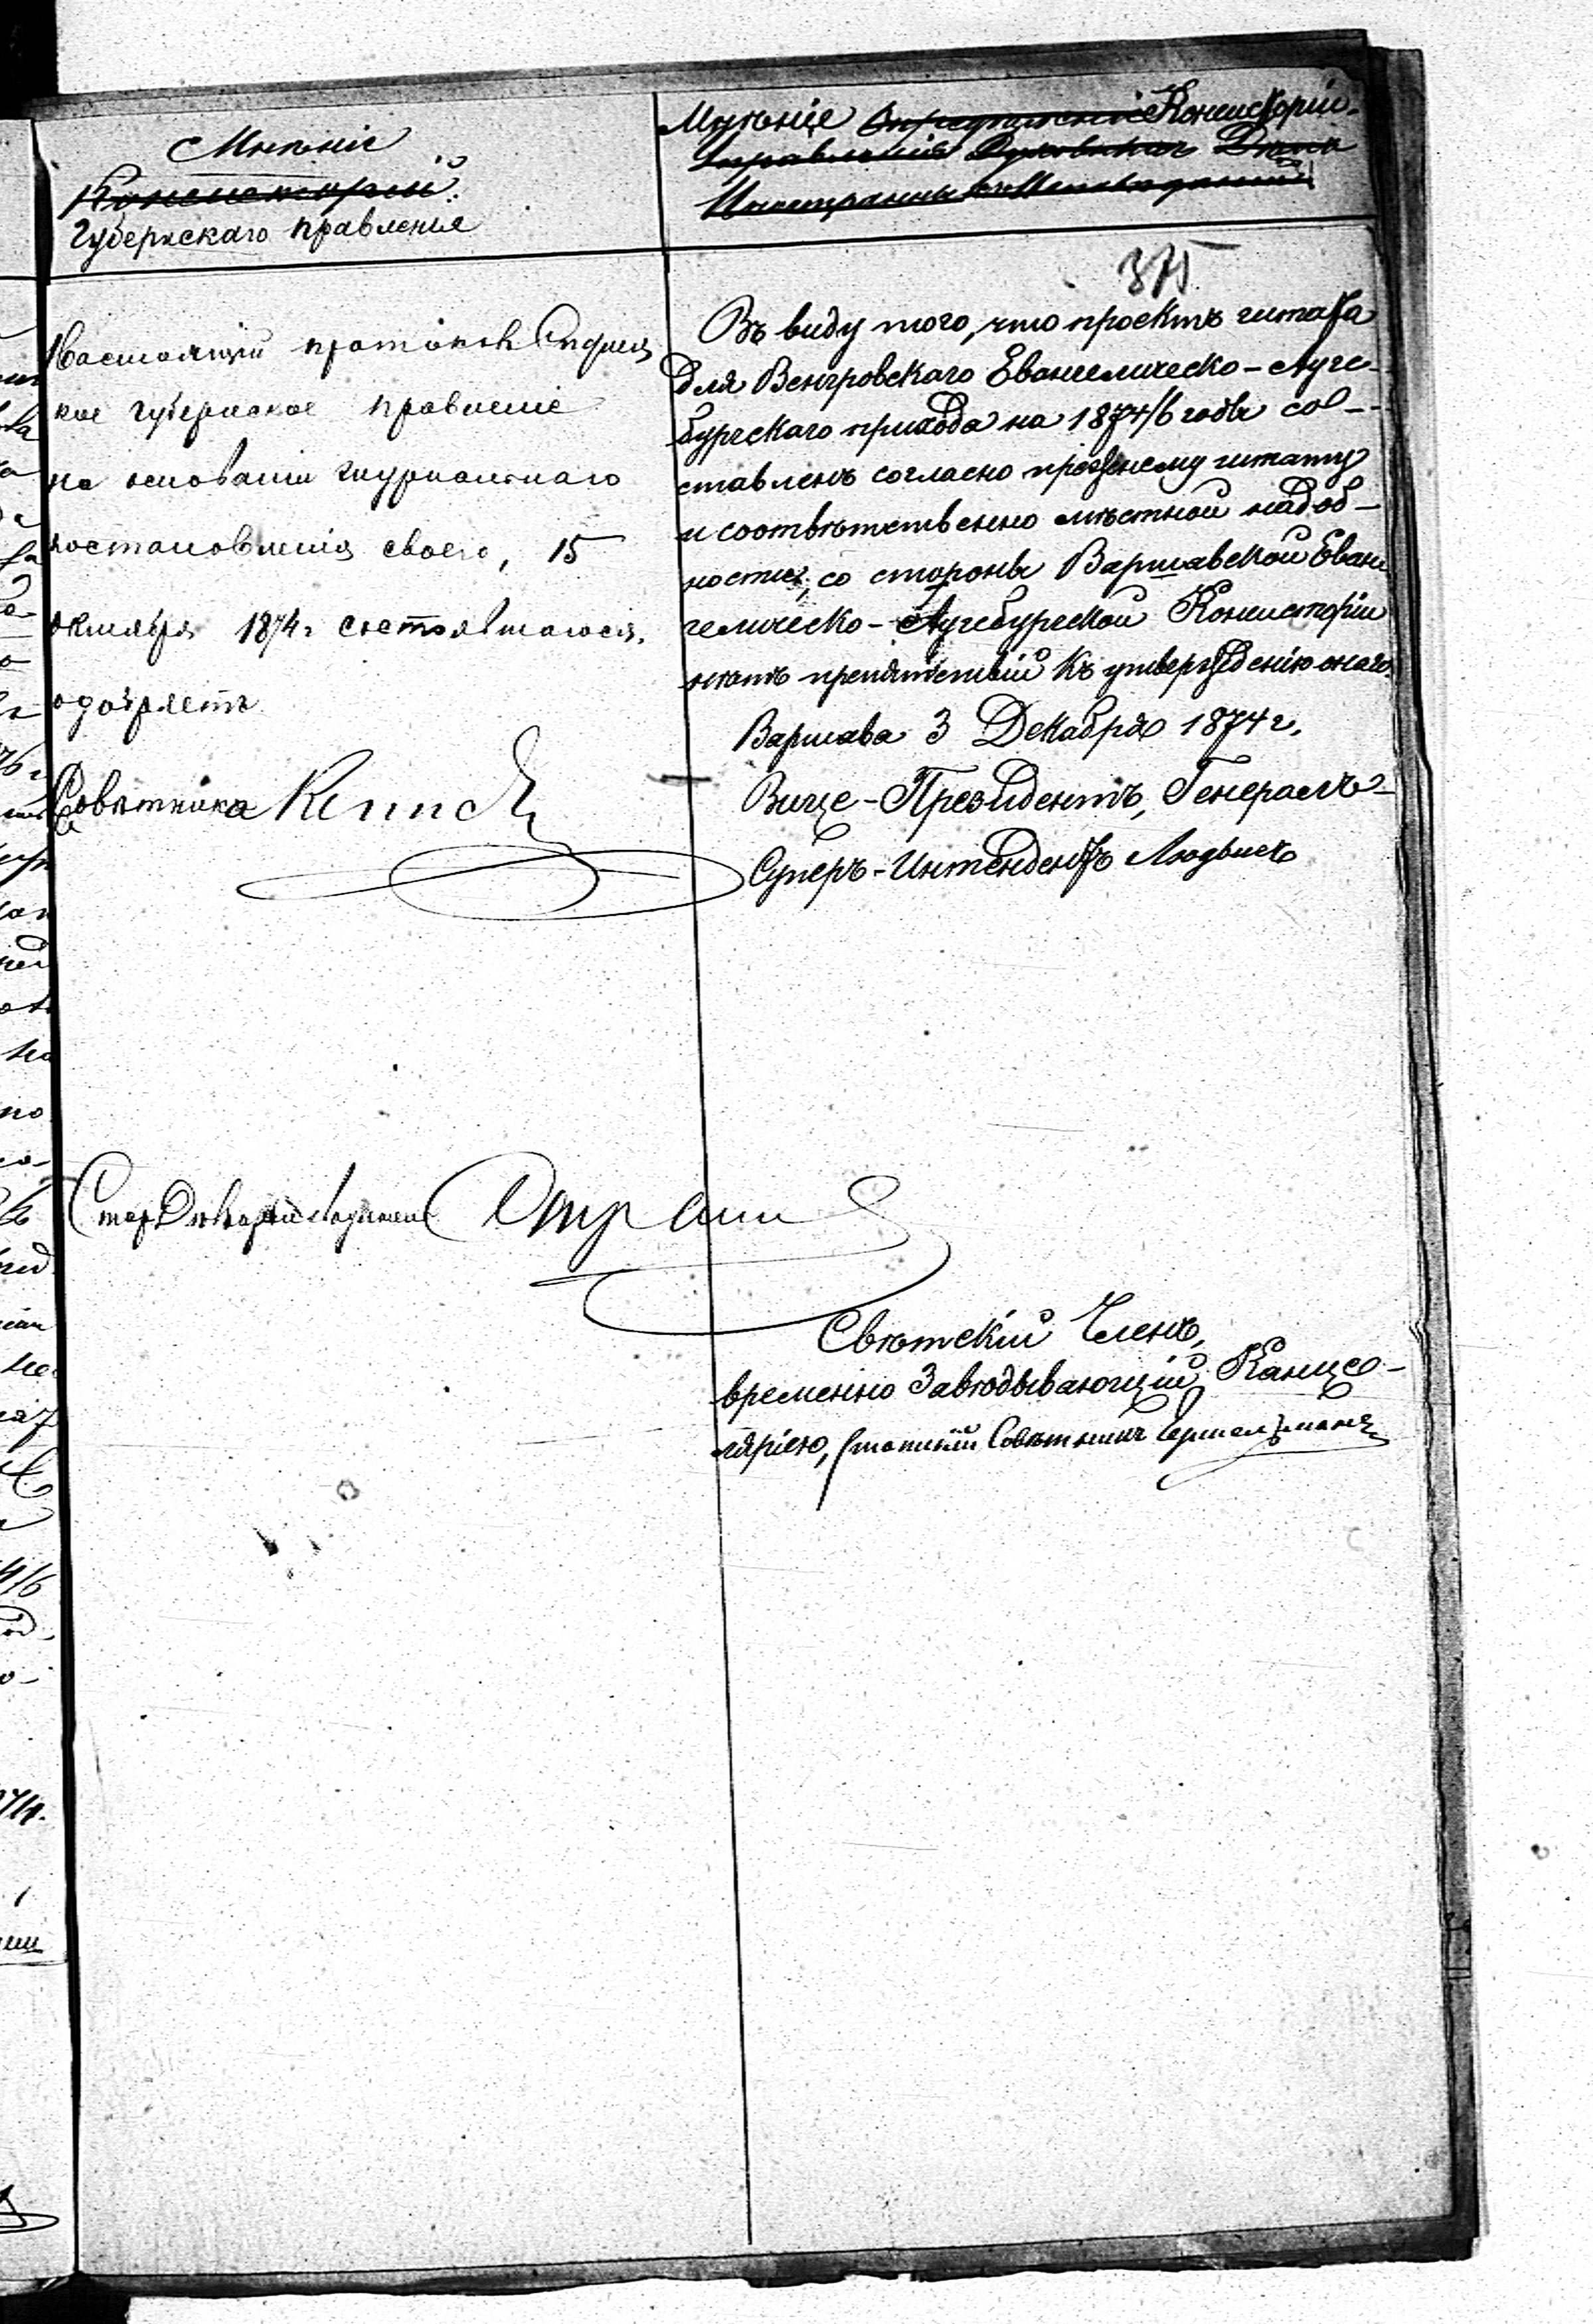 Мнѣніе
Консисторіи.
Губернскаго Правленія
Настоящій протоколъ Сѣдлец
кое Губернское Правленіе
на основаніи журнальнаго
постановленія своего, 15
октября 1874 г состоявшагося,
одобряетъ
Совѣтникъ
Мнѣніе Консисторіи.
Управленія Духовныхъ Дѣлъ
Иностранныхъ Исповѣданій
375
Въ виду того, что проектъ штата
для Венгровскаго Евангелическо-Аугс-
бургскаго прихода на 1874/6 годы со-
ставленъ согласно прежнему штату
и соотвѣтственно мѣстной надоб-
ности, со стороны Варшавской Еван
гелическо-Аугсбургской Консисторіи
нѣтъ препятствій къ утвержденію онаго.
Варшава 3 Декабря 1874 г.
Вице-Президентъ, Генералъ-
Суперъ-Интендентъ Людвигъ
Свѣтскій Членъ,
временно Завѣдывающій Канце-
ляріею, Статскій Совѣтникъ